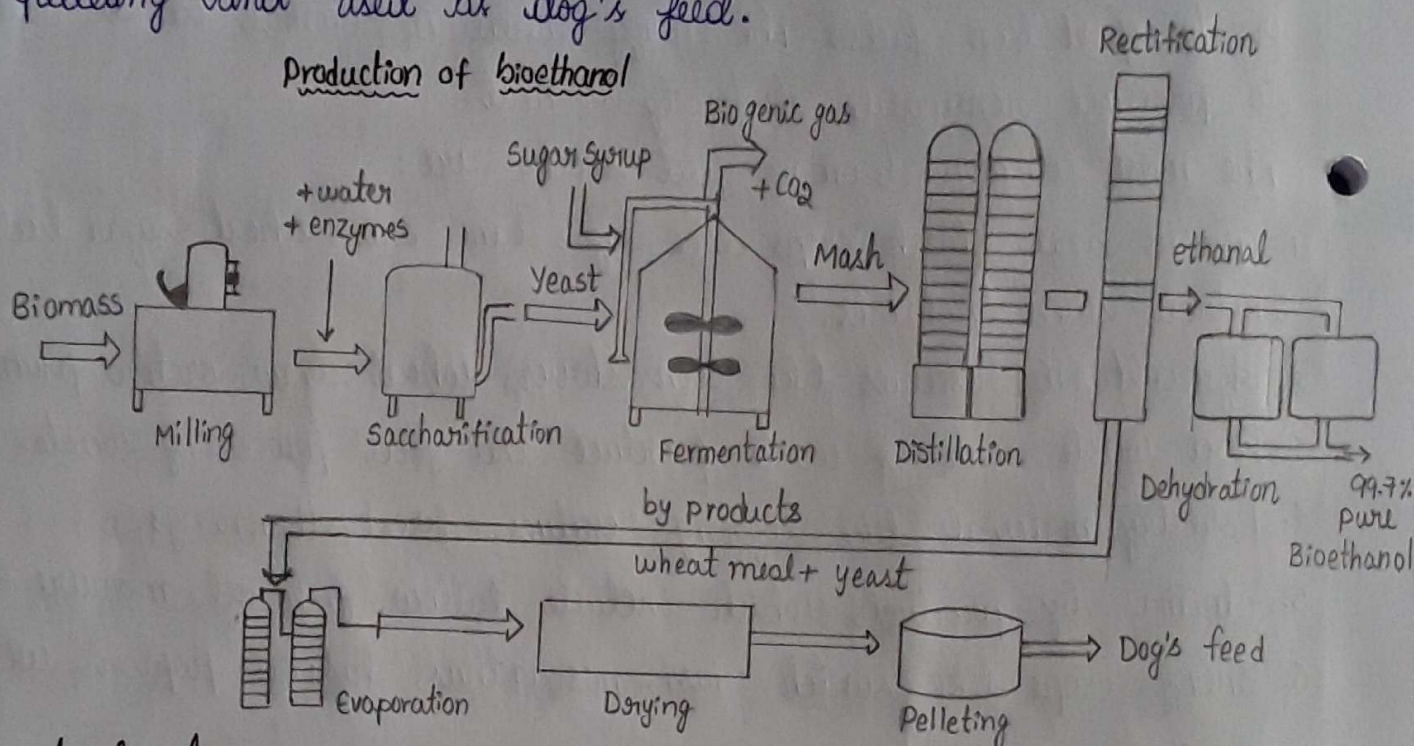 and used as dog's feed.
Production of bioethanol
Rectification
Biogenic gas
+ CO2
Sugar Syrup
+ water
+ enzymes
Biomass
Yeast
Mash
ethanal
Milling
Saccharification
Fermentation
Distillation
Dehydration
99.7%
pure
Bioethanol
by products
wheat meal + yeast
Evaporation
Drying
Pelleting
Dog's feed